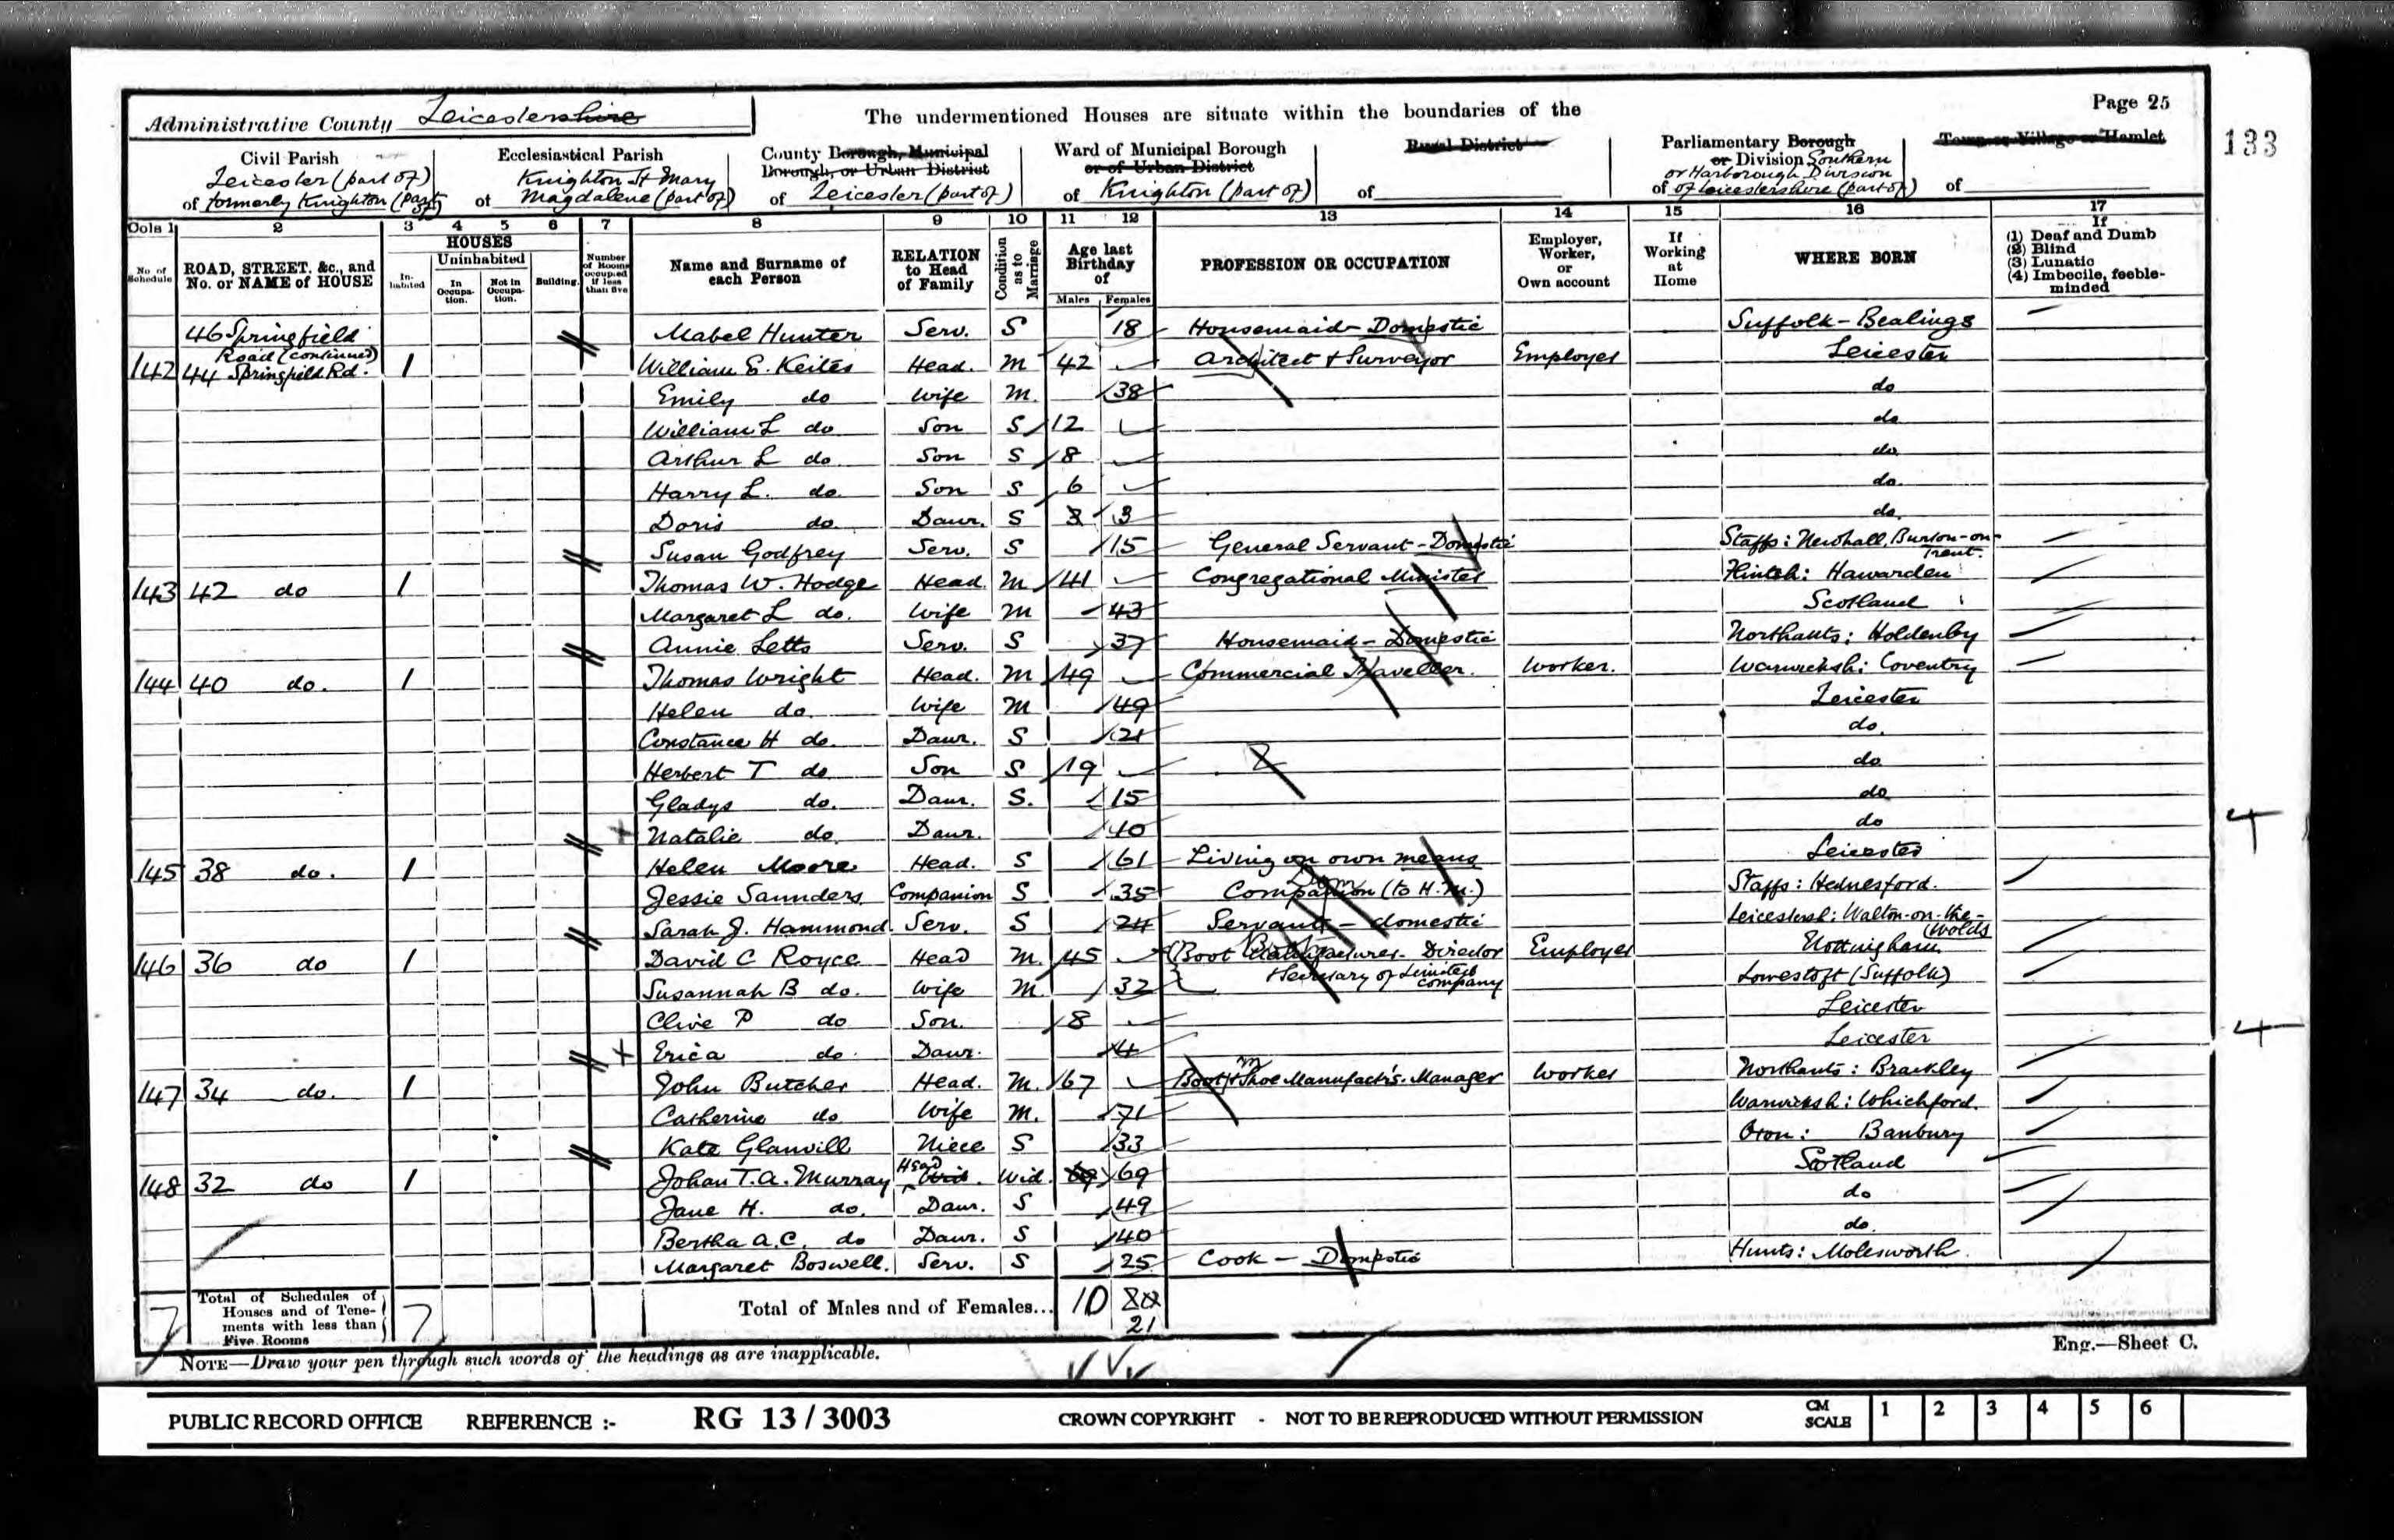 Page 25
Administrative County Leicestershire
The undermentioned Houses are situate within the boundaries of the
133
Civil Parish
Leicester (part of)
of formerly Knighton (part of)
Ecclesiastical Parish
Knighton St Mary
of Magdalene (part of)
County Borough, Municipal
Borough, or Urban District
of Leicester (part of)
Ward of Municipal Borough
or of Urban District
of Knighton (part of)
Rural District
of
Parliamentary Borough
or Division Southern
or Harborough Division
of of Leicestershire (part of)
Town or Village or Hamlet
of
Cols 1 2 3 4 5 6 7 8 9 10 11 12 13 14 15 16 17
No of Schedule
ROAD, STREET, &c., and No. or NAME of HOUSE
HOUSES
Inhabited
Uninhabited
In Occupation.
Not in Occupation.
Building.
Number of Rooms occupied if less than five
Name and Surname of each Person
RELATION to Head of Family
Condition as to Marriage
Age last Birthday of
Males Females
PROFESSION OR OCCUPATION
Employer, Worker, or Own account
If Working at Home
WHERE BORN
If
(1) Deaf and Dumb
(2) Blind
(3) Lunatic
(4) Imbecile, feeble-minded
46 Springfield Road (continued) Mabel Hunter Serv. S 18 Housemaid - Domestic Suffolk - Bealings
142 44 Springfield Rd. 1 William S. Keites Head. M 42 Architect & Surveyor Employer Leicester
Emily do Wife M. 38 do
William L do Son S 12 do
Arthur L do. Son S 8 do
Harry L. do. Son S 6 do.
Doris do. Daur. S 3 3 do.
Susan Godfrey Serv. S 15 General Servant - Domestic Staffs: Newhall, Burton-on-Trent.
143 42 do 1 Thomas W. Hodge Head M 41 Congregational Minister Flintsh: Hawarden
Margaret L do. Wife M 43 Scotland
Annie Letts Serv. S 37 Housemaid - Domestic Northants: Holdenby
144 40 do. 1 Thomas Wright Head. M 49 Commercial Traveller. Worker. Warwicksh: Coventry
Helen do. Wife M 49 Leicester
Constance H do. Daur. S 21 do.
Herbert T do Son S 19 do
Gladys do. Daur. S. 15 do
+ Natalie do. Daur. 10 do
145 38 do. 1 Helen Moore Head. S 61 Living on own means Leicester
Jessie Saunders Companion S 35 Companion (to H.M.) Dom Staffs: Hednesford.
Sarah J. Hammond Serv. S 24 Servant - domestic Leicestersh: Walton-on-the-Wolds
146 36 do 1 David C Royce Head M. 45 Boot Manufacturers - Director Employer Nottingham
& Secretary of Limited company
Susannah B do. Wife M. 32 Lowestoft (Suffolk)
Clive P do Son. 8 Leicester
+ Erica do. Daur. 4 Leicester
147 34 do. 1 John Butcher Head. M. 67 Boot & Shoe Manufact's. Manager Worker Northants: Brackley
Catherine do. Wife M. 71 Warwicksh: Whichford.
Kate Glanvill Niece S 33 Oxon: Banbury
148 32 do 1 Johan T. A. Murray Head Wid. Wid. 69 69 Scotland
Jane H. do. Daur. S 49 do
Bertha A. C. do Daur. S 40 do.
Margaret Boswell. Serv. S 25 Cook - Domestic Hunts: Molesworth.
7 Total of Schedules of Houses and of Tenements with less than Five Rooms 7
Total of Males and of Females... 10 20
21
NOTE—Draw your pen through such words of the headings as are inapplicable.
Eng.—Sheet C.
PUBLIC RECORD OFFICE REFERENCE :- RG 13 / 3003 CROWN COPYRIGHT - NOT TO BE REPRODUCED WITHOUT PERMISSION CM SCALE 1 2 3 4 5 6